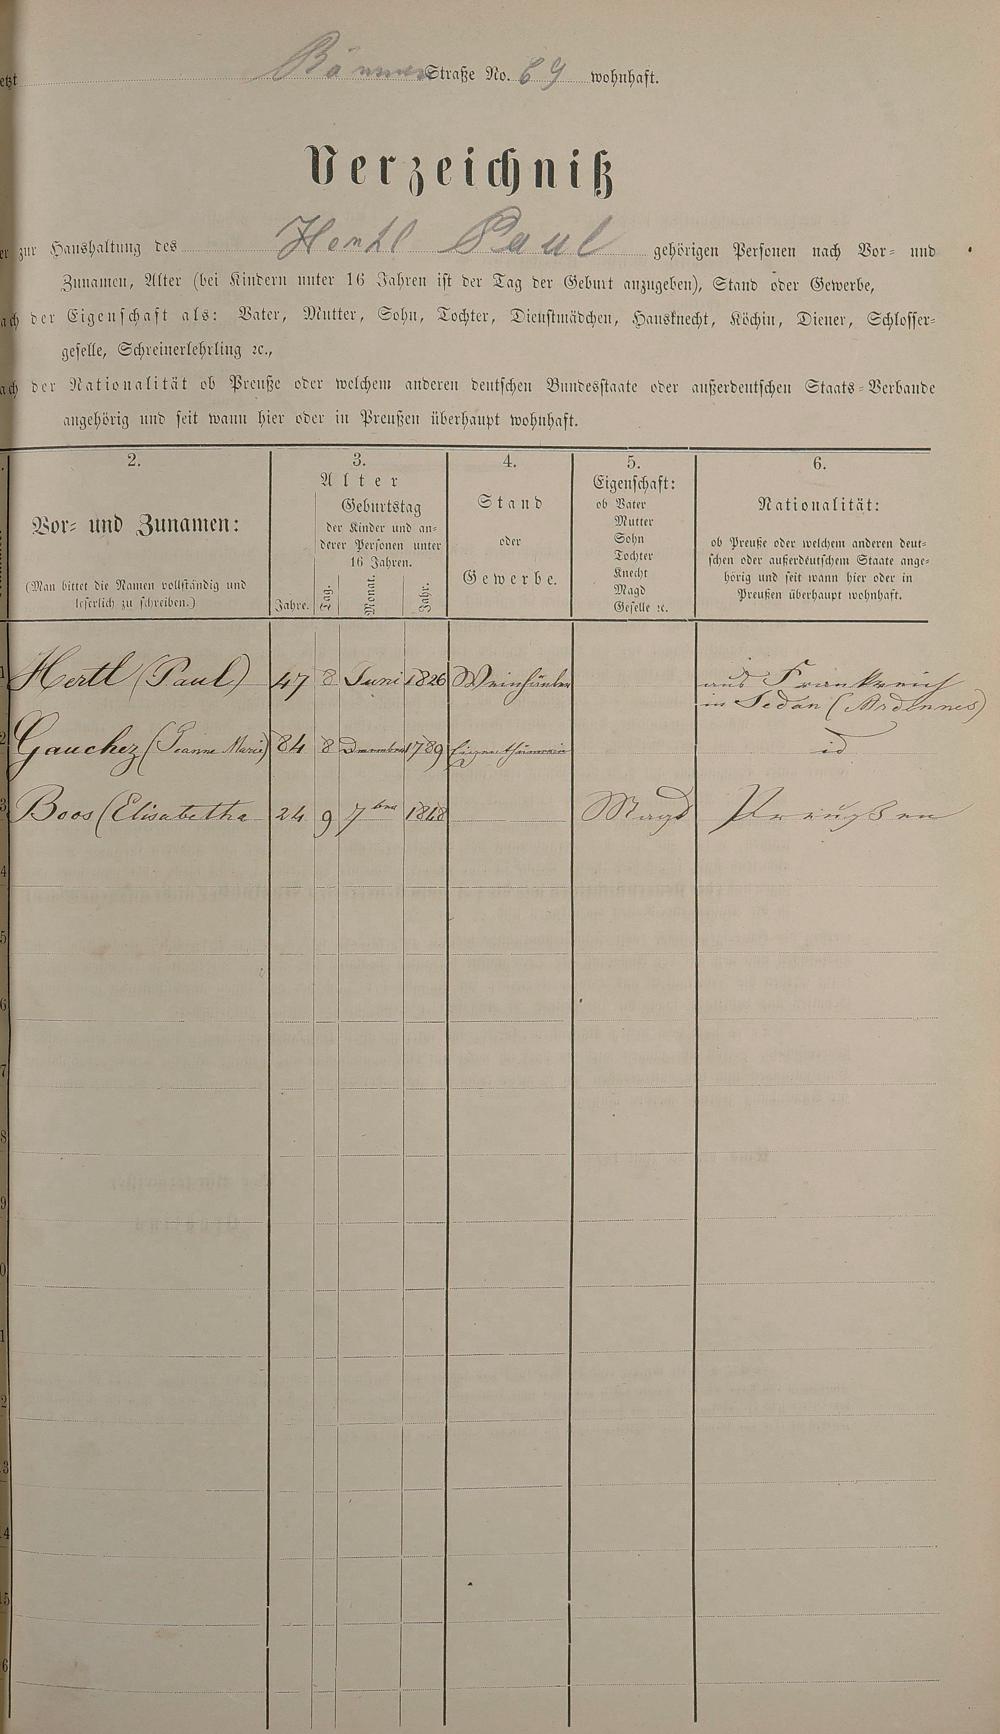 etzt Straße No. 69 wohnhaft.
Verzeichniß
er zur Haushaltung des Hertl Paul gehörigen Personen nach Vor- und
Zunamen, Alter (bei Kindern unter 16 Jahren ist der Tag der Geburt anzugeben), Stand oder Gewerbe,
ach der Eigenschaft als: Vater, Mutter, Sohn, Tochter, Dienstmädchen, Hausknecht, Köchin, Diener, Schlosser-
geselle, Schreinerlehrling ꝛc.,
ach der Nationalität ob Preuße oder welchem anderen deutschen Bundesstaate oder außerdeutschen Staats-Verbande
angehörig und seit wann hier oder in Preußen überhaupt wohnhaft.
2. 3. 4. 5. 6.
Vor- und Zunamen:
(Man bittet die Namen vollständig und
leserlich zu schreiben.)
Alter
Jahre.
Geburtstag
der Kinder und an-
derer Personen unter
16 Jahren.
Tag. Monat. Jahr.
Stand
oder
Gewerbe.
Eigenschaft:
ob Vater
Mutter
Sohn
Tochter
Knecht
Magd
Geselle ꝛc.
Nationalität:
ob Preuße oder welchem anderen deut-
schen oder außerdeutschem Staate ange-
hörig und seit wann hier oder in
Preußen überhaupt wohnhaft.
1 Hertl (Paul) 47 8 Juni 1826 Weinhändler aus Frankreich
in Sedan (Ardennes)
2 Gauchez (Jeanne Marie) 84 8 December 1789 Eigenthümerin id
3 Boos (Elisabetha 24 9 7ber 1848 Magd Preußen
4
5
6
7
8
9
0
1
2
3
4
5
6